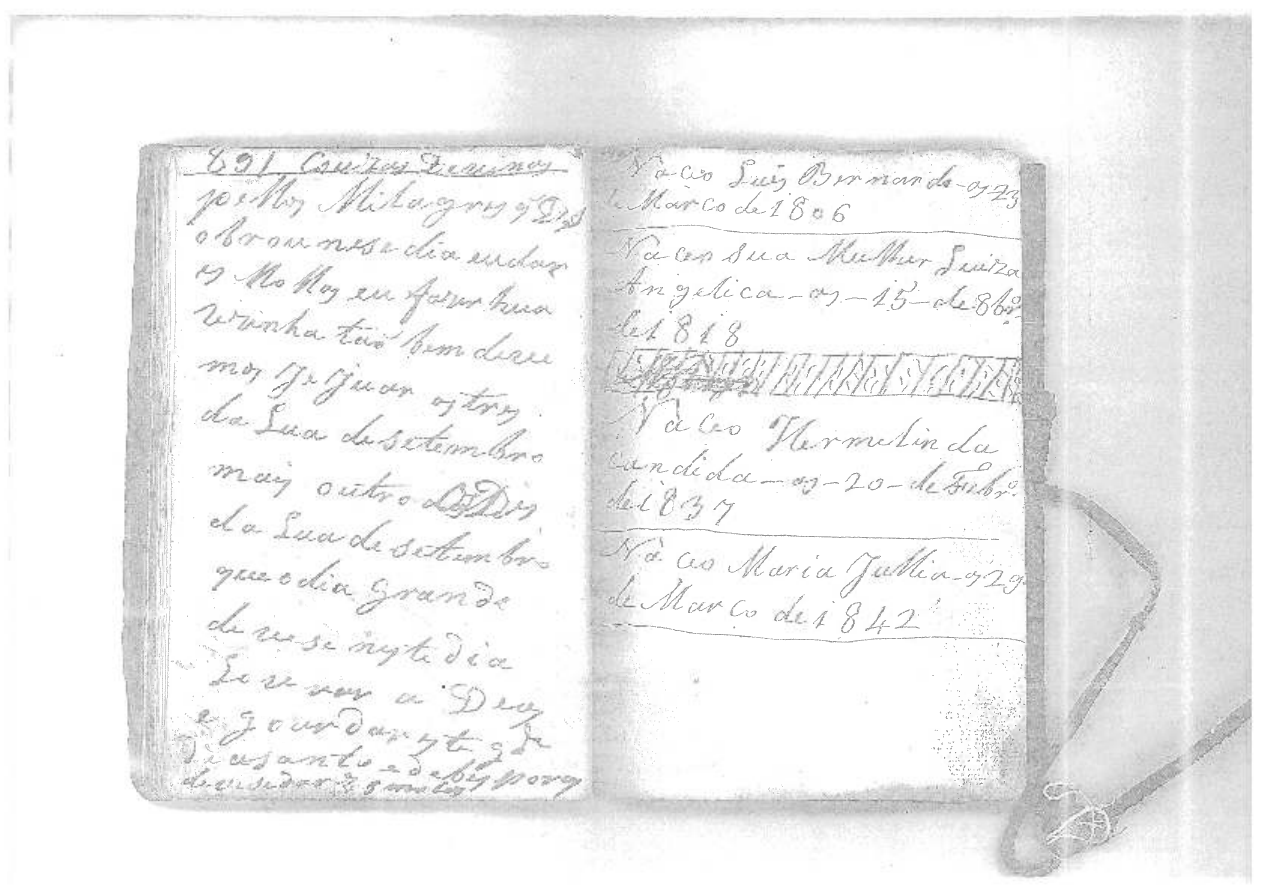 891 Couzas Devinas
pellos Milagres q Ds
obrou nese dia eu dar
es mollas eu fazer hua
vezinha tão bem deve
mos Jejuar os tres
da Lua de setembro
mais outro dos Des
da Lua de setembro
que o dia grande
de vese neste dia
Lovvar a Deus
e gourdar este q he
dia santo
devese dar
Naceo Luis Bernardo - os 23
de Março de 1806
Naceo sua Mulher Luiza
Angelica - os - 15 - de 8bro.
de 1818
Naceo Hermelinda
candida - os - 20 - de Febro.
de 1837
Naceo Maria Jullia - os 29
de Março de 1842